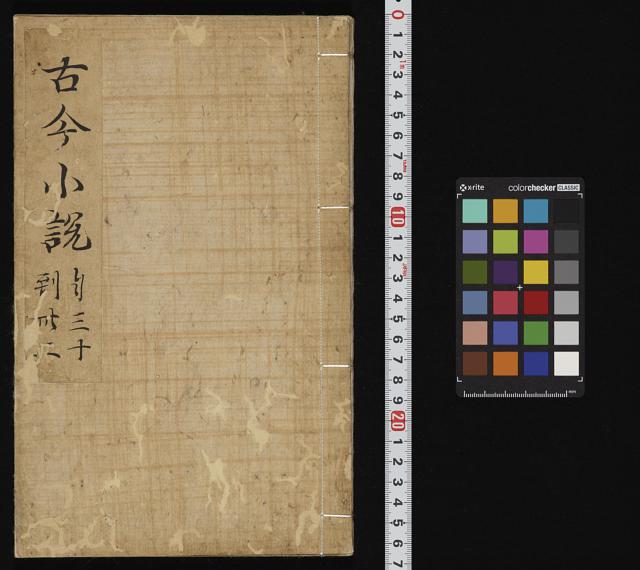 古今小說
自三十
到卅二
0
1
2
3
4
5
6
7
8
9
10
1
2
3
4
5
6
7
8
9
20
1
2
3
4
5
6
7
x-rite
colorchecker CLASSIC
mm